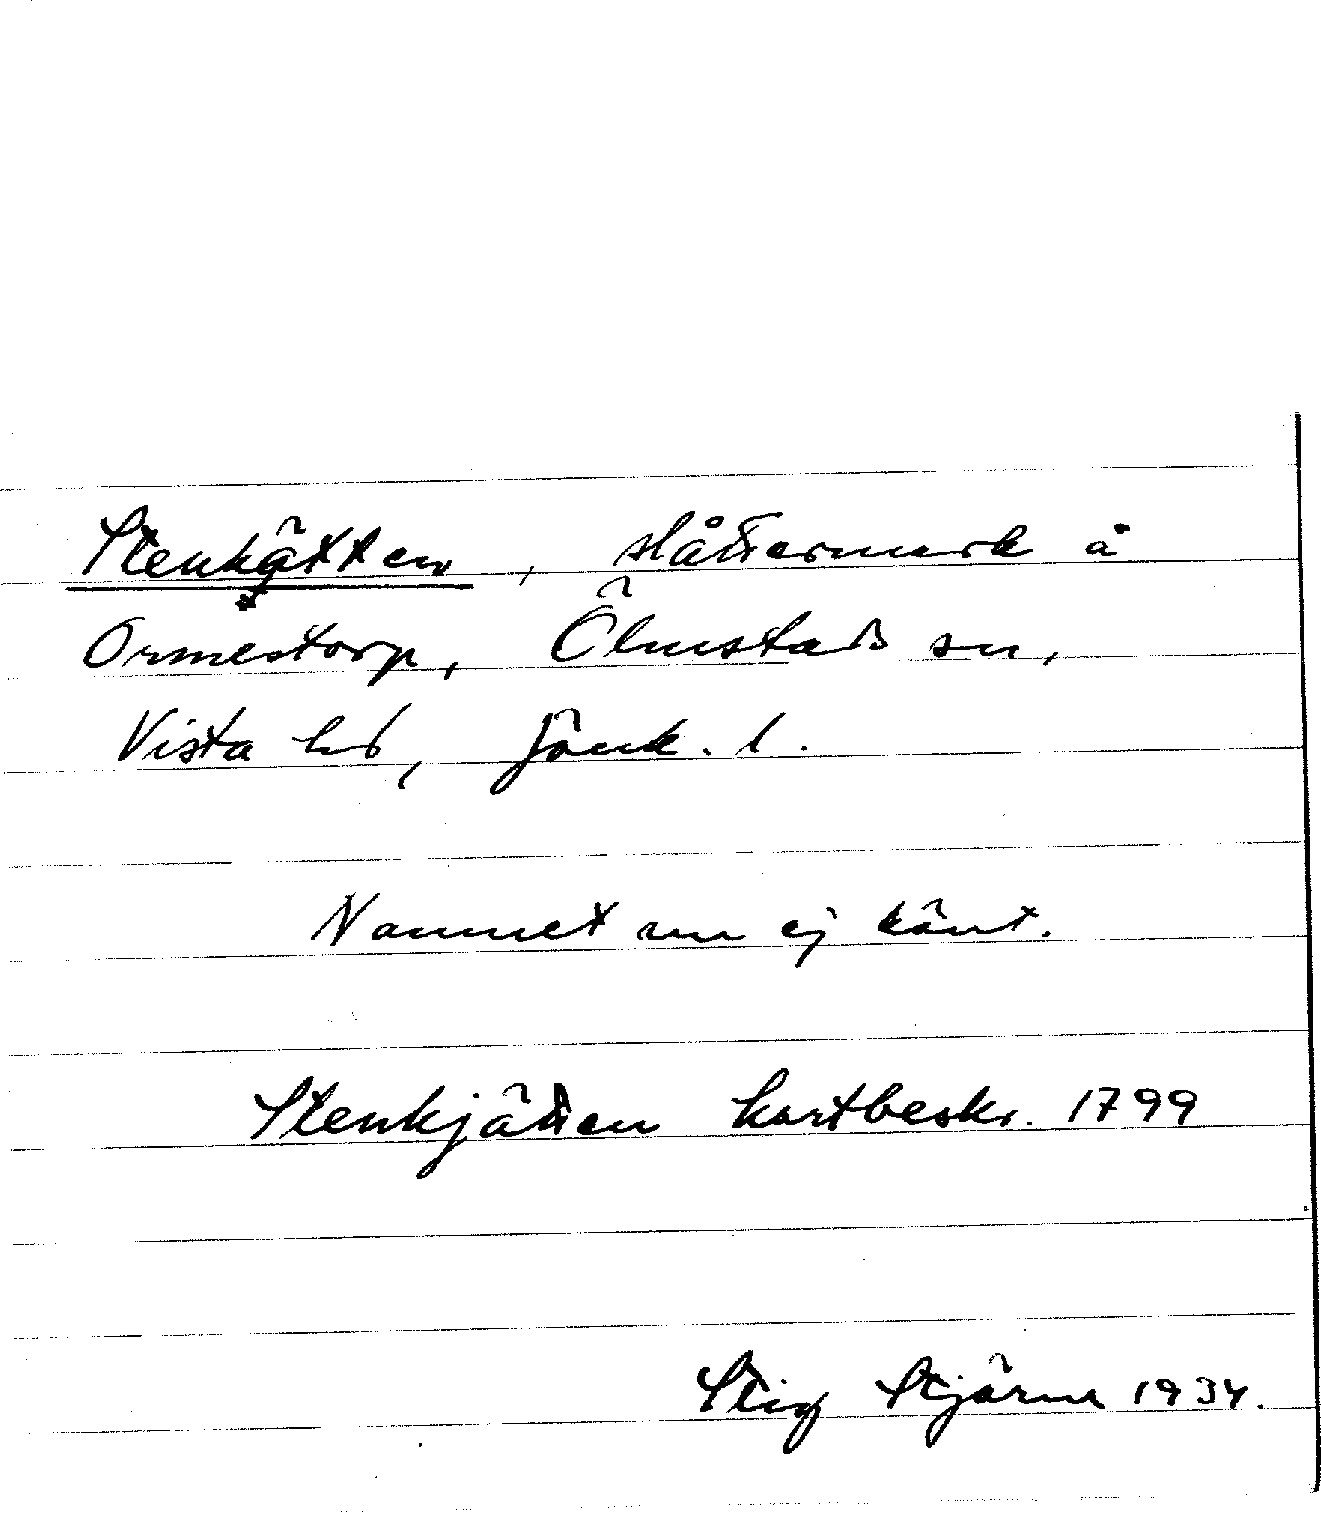 Stenkätten, slåttermark å
Ormestorp, Ölmstads sn,
Vista hd, Jönk. l.
Namnet nu ej känt.
Stenkjätten kartbeskr. 1799
Stig Stjärne 1934.